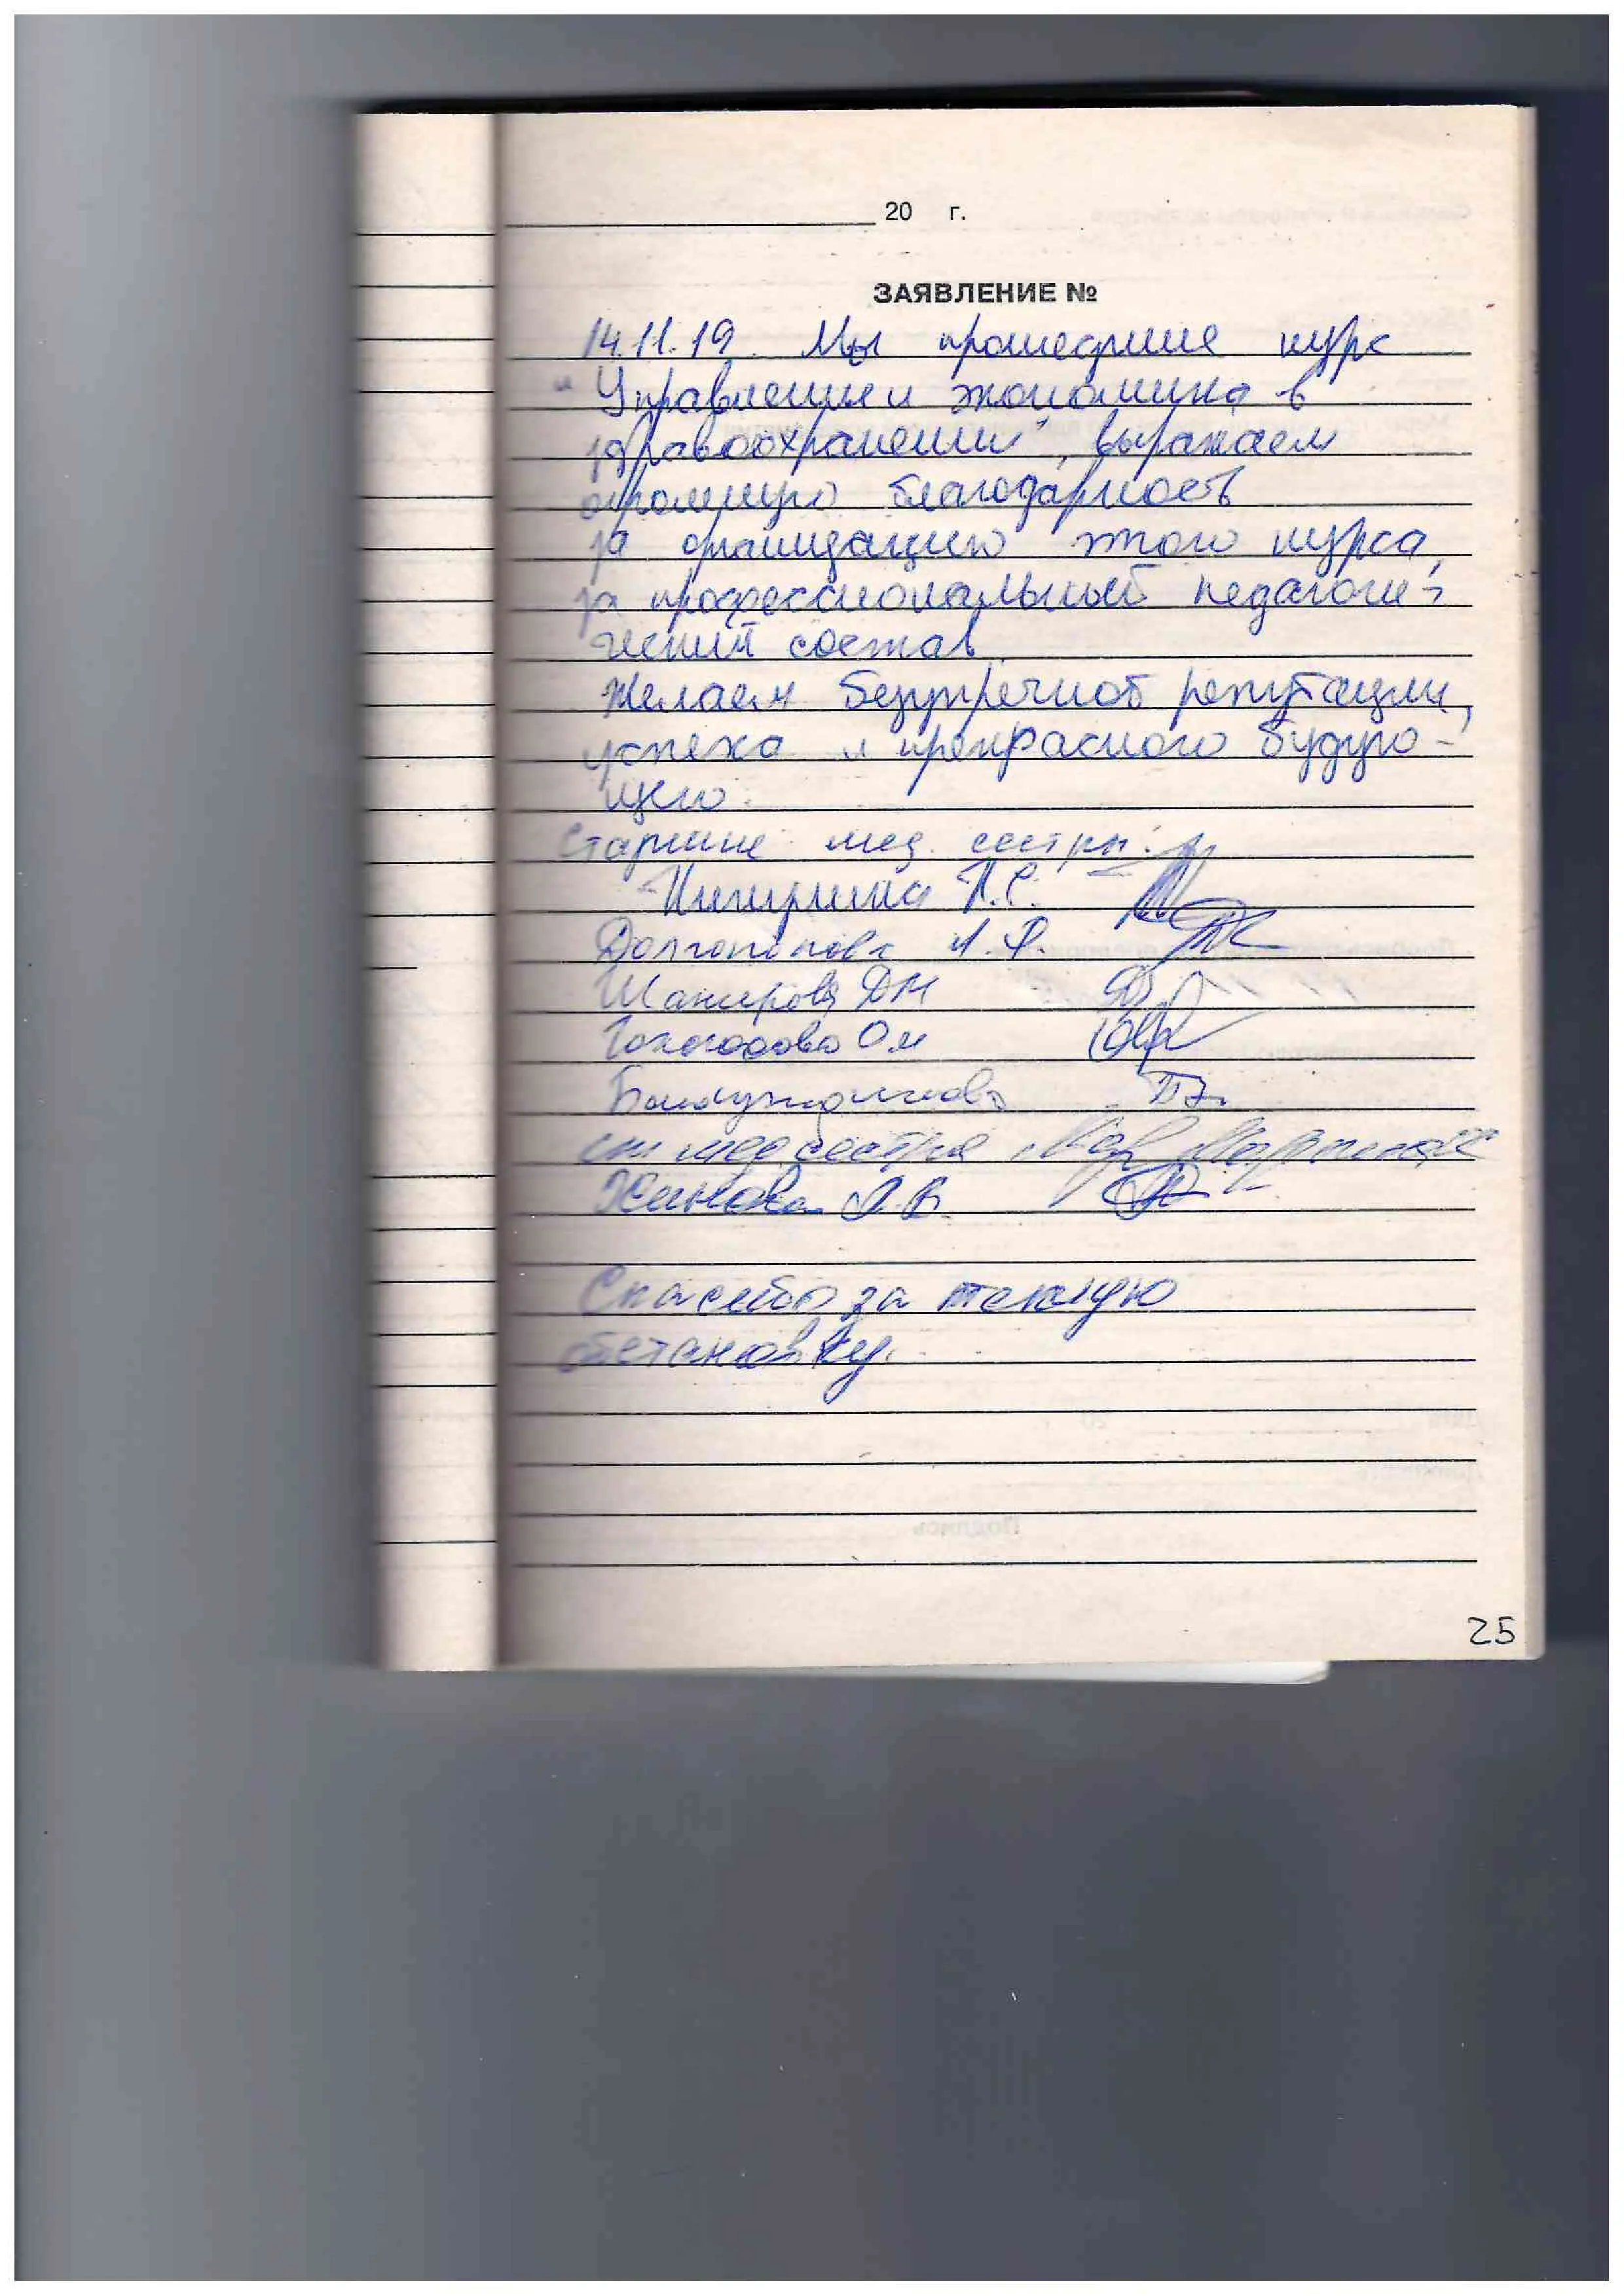 20 г.
ЗАЯВЛЕНИЕ №
14.11.19. Мы прошедшие курс
"Управление и экономика в
здравоохранении", выражаем
огромную благодарность
за организацию этого курса,
за профессиональный педагоги-
ческий состав.
Желаем безупречной репутации,
успеха и прекрасного будую-
щего.
Старшие мед. сестры:
Л.С.
Долгополова Л.Ф.
Шакирова ДМ
ОМ
ст медсестра
Л.В.
Спасибо за теплую
обстановку.
25